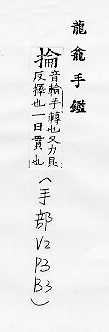 龍龕手鑑
掄音輪手轉也又力昆
反擇也一曰貫也
(手部V2 P3 B3)